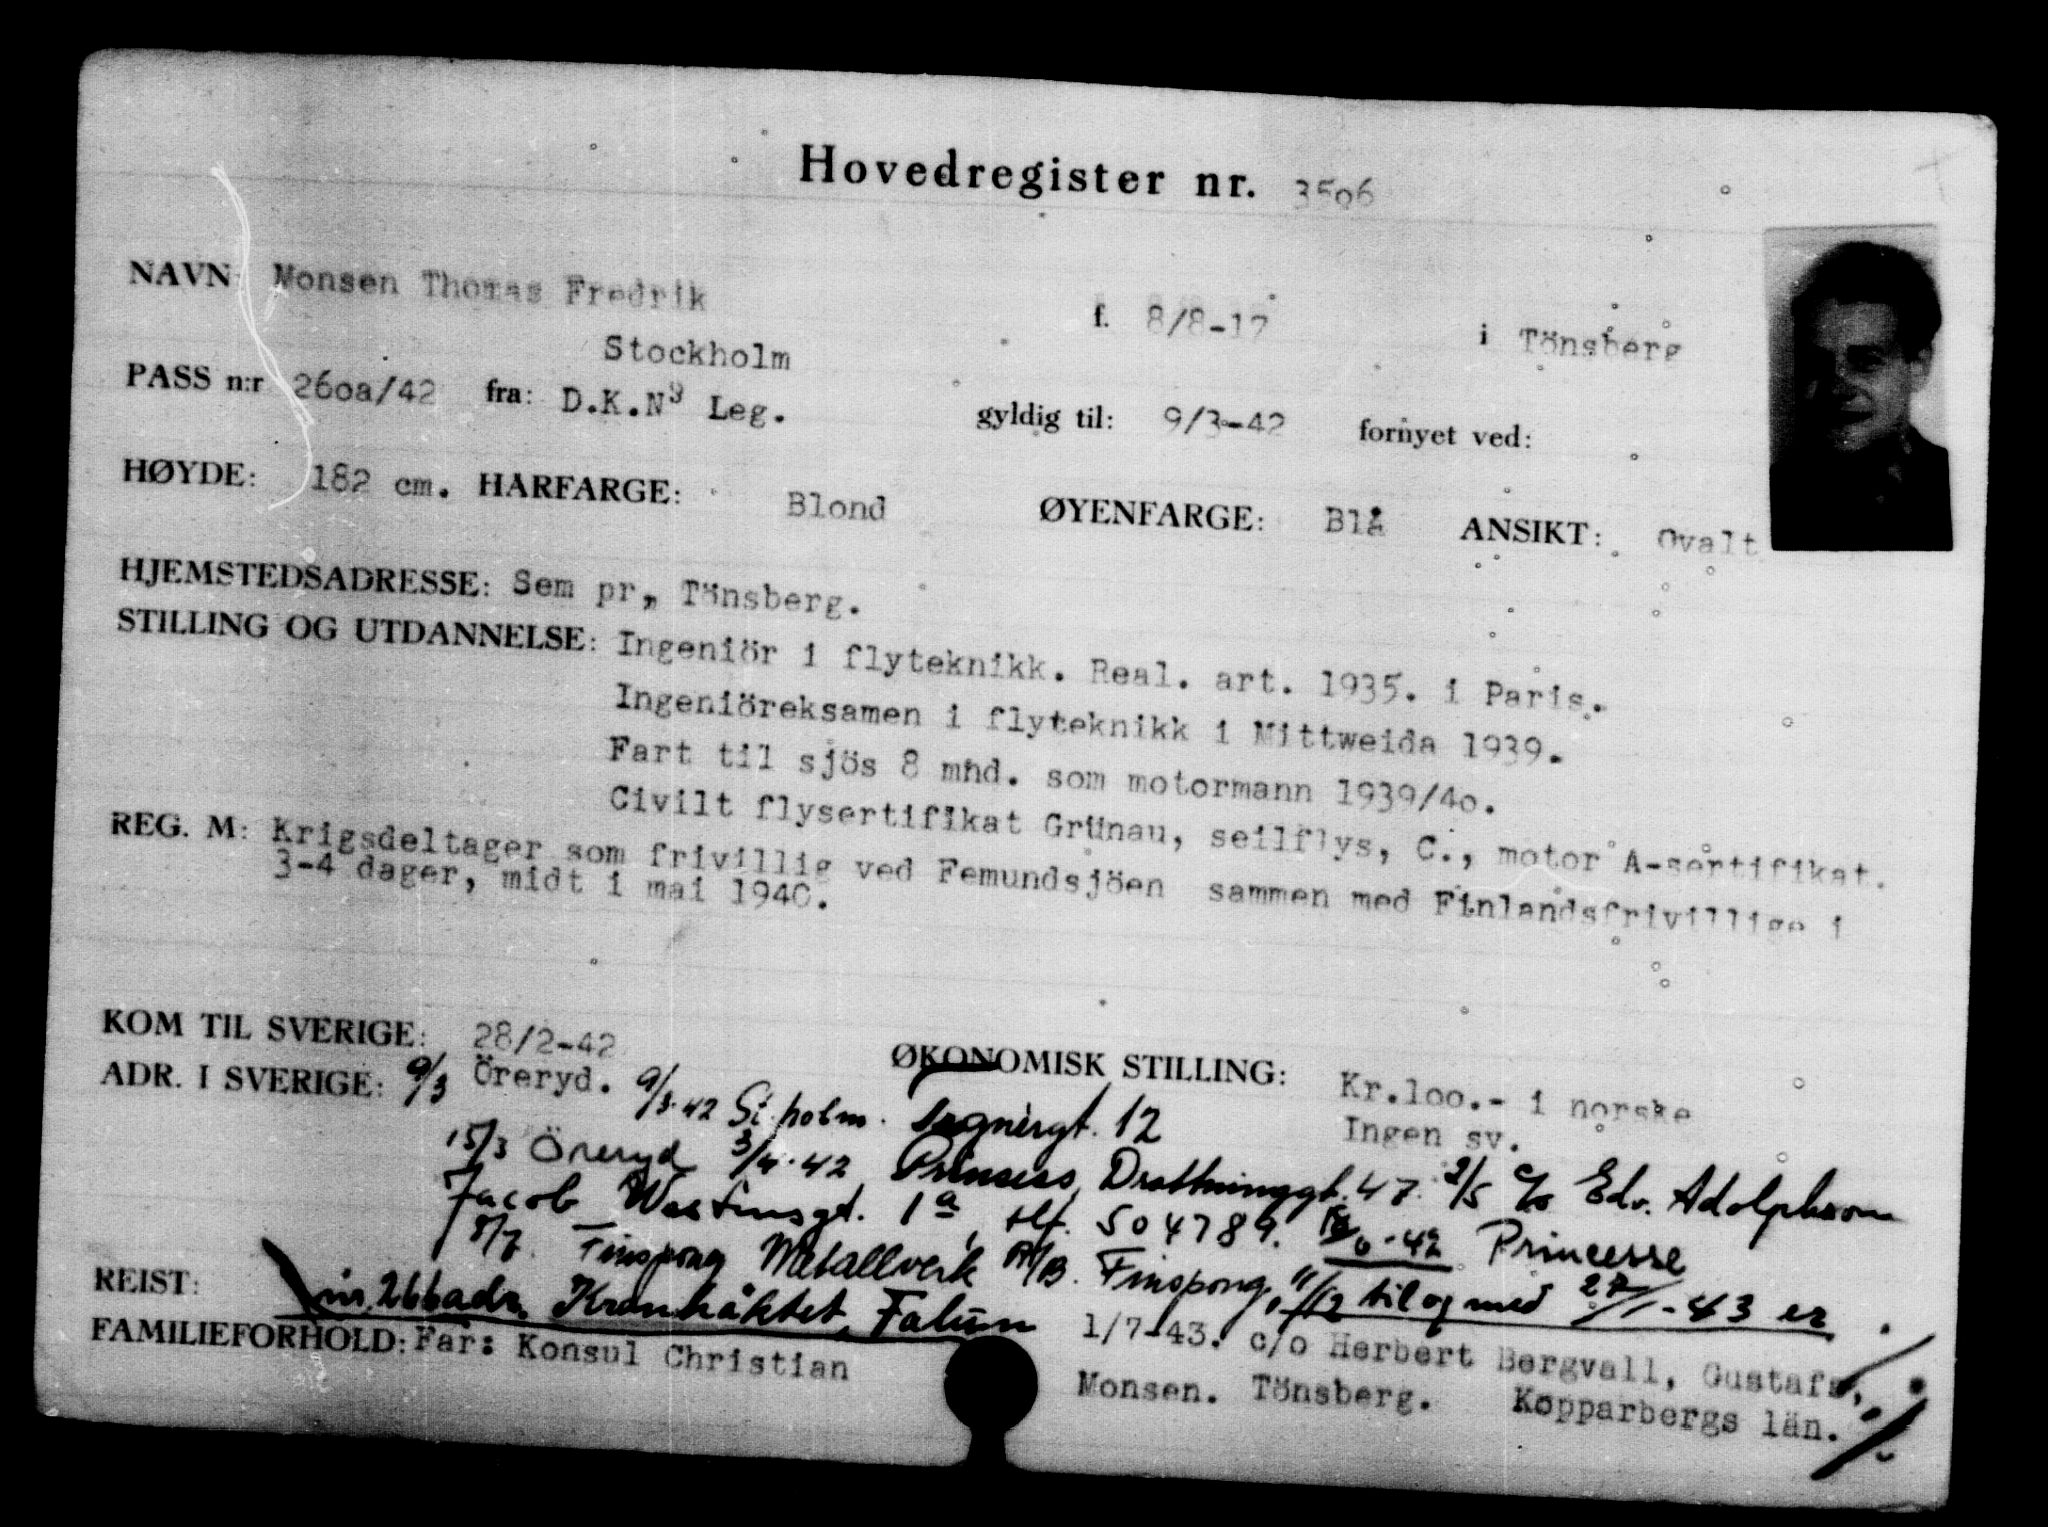 Hovedregister nr. 3506
NAVN: Monsen Thomas Fredrik f. 8/8-17 i Tönsberg
Stockholm
PASS n:r 260a/42 fra: D.K.N. Leg. gyldig til: 9/3-42 fornyet ved:
HØYDE: 182 cm. HARFARGE: Blond ØYENFARGE: Blå ANSIKT: Ovalt
HJEMSTEDSADRESSE: Sem pr, Tönsberg.
STILLING OG UTDANNELSE: Ingeniör i flyteknikk. Real. art. 1935. i Paris.
Ingeniöreksamen i flyteknikk i Mittweida 1939.
Fart til sjös 8 mnd. som motormann 1939/40.
Civilt flysertifikat Grünau, seilflys, C., motor A-sertifikat.
REG. M: Krigsdeltager som frivillig ved Femundsjöen sammen med Finlandsfrivillige i
3-4 dager, midt i mai 1940.
KOM TIL SVERIGE: 28/2-42
ØKONOMISK STILLING: Kr.100.- i norske
Ingen sv.
ADR. I SVERIGE: 9/3 Öreryd. 9/3.42 St.holm. 12
15/3 Öreryd 3/4.42 Prinsess, Drottninggt. 47. 2/5 c/o Edv. Adolphson
Jacob Westinsgt. 1a, tlf. 504789. -42 Princesse
8/7. Finspong Metallverk A/B. Finspong, 11/12 til og med 27/1-43 er
REIST: nr. 266 adr. Kronhäktet, Falun
1/7-43. c/o Herbert Bergvall, Gustafs,
Kopparbergs län.
FAMILIEFORHOLD: Far: Konsul Christian Monsen. Tönsberg.